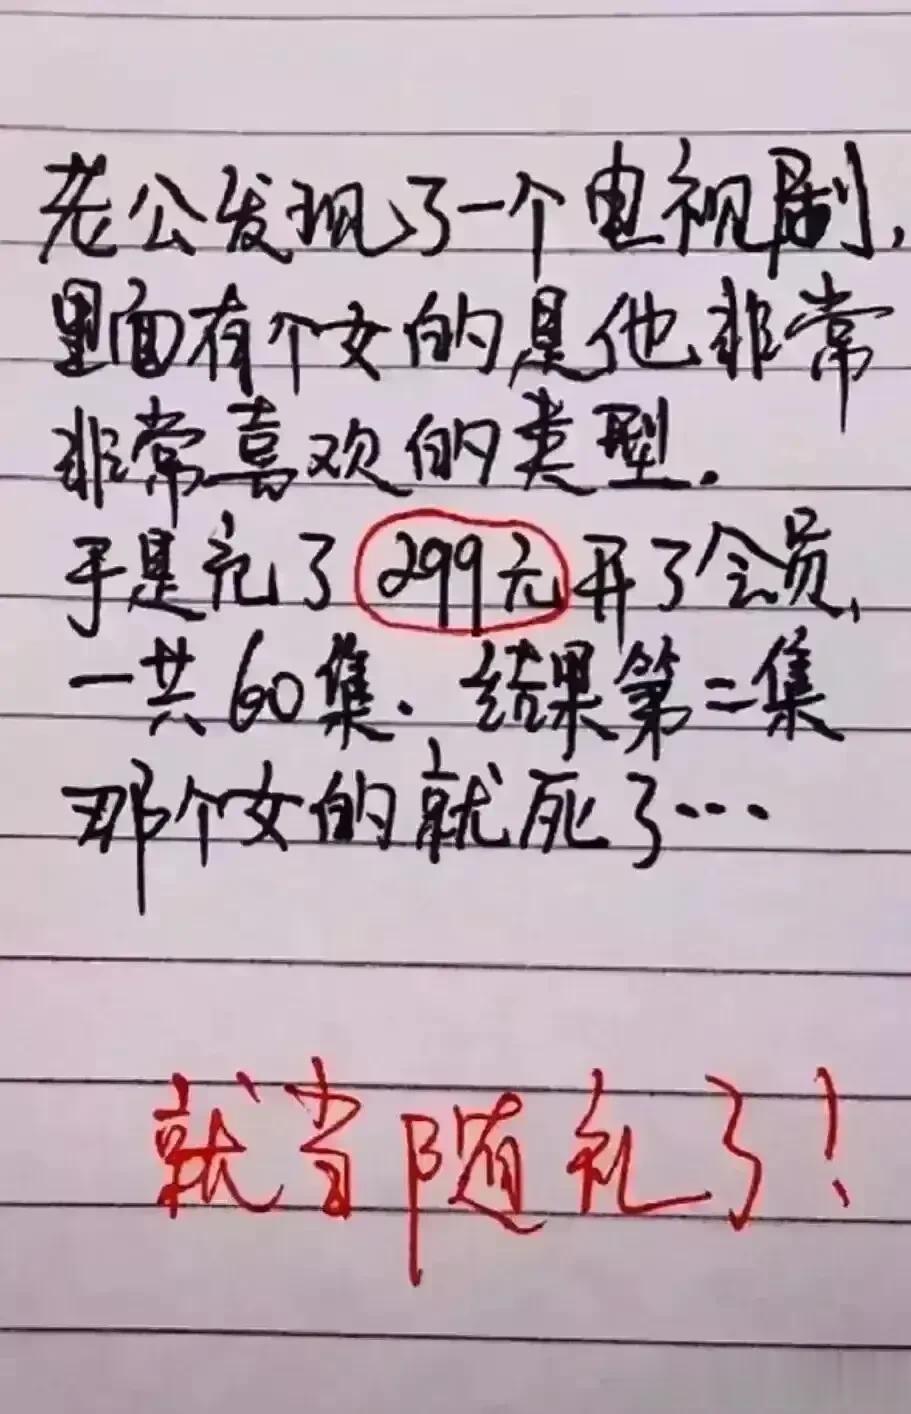 老公发现了一个电视剧,
里面有个女的是他非常
非常喜欢的类型.
于是充了299元开了会员,
一共60集.结果第二集
那个女的就死了…
就当随礼了!